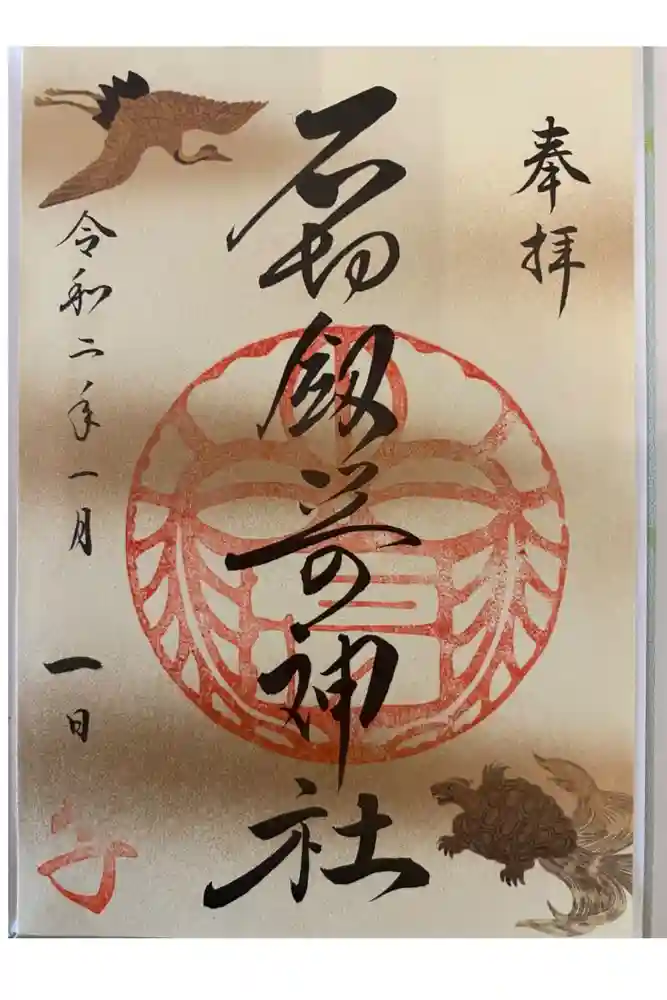 奉拝
石切劔箭神社
令和二年一月
一日
子